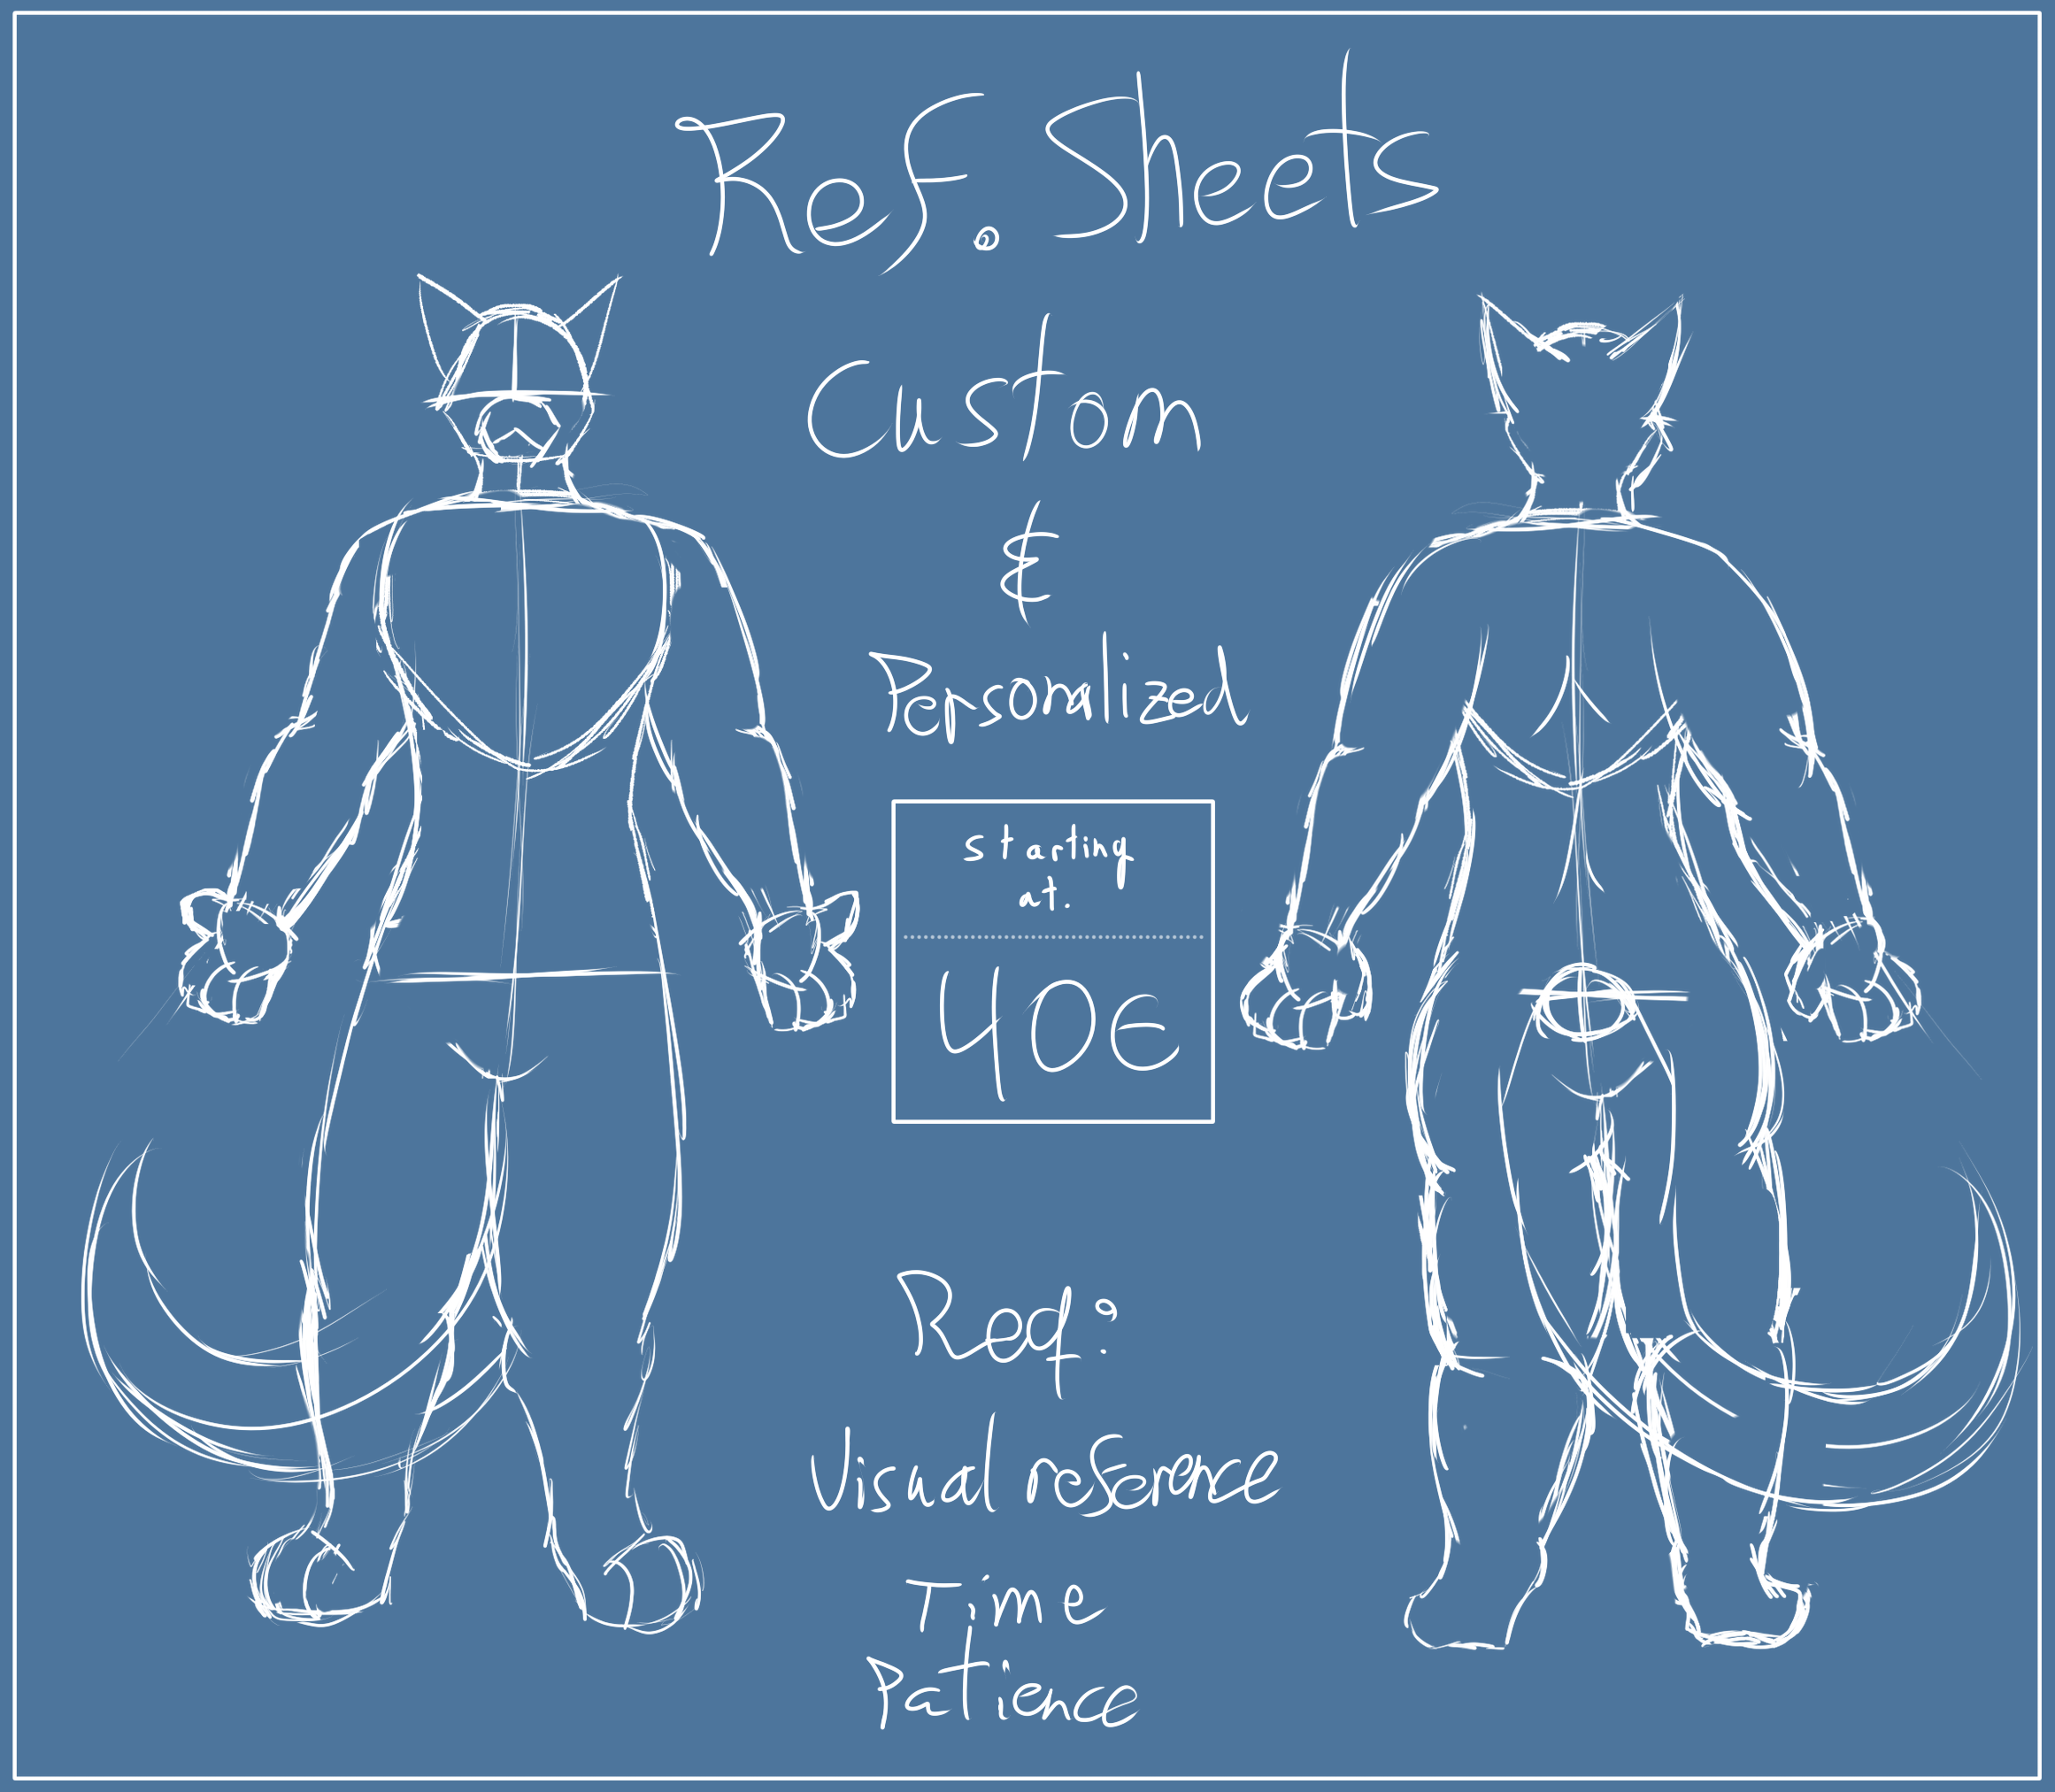 Ref. Sheets
Custom
&
Personalized
starting
at.
40€
Req:
Visual reference
Time
Patience